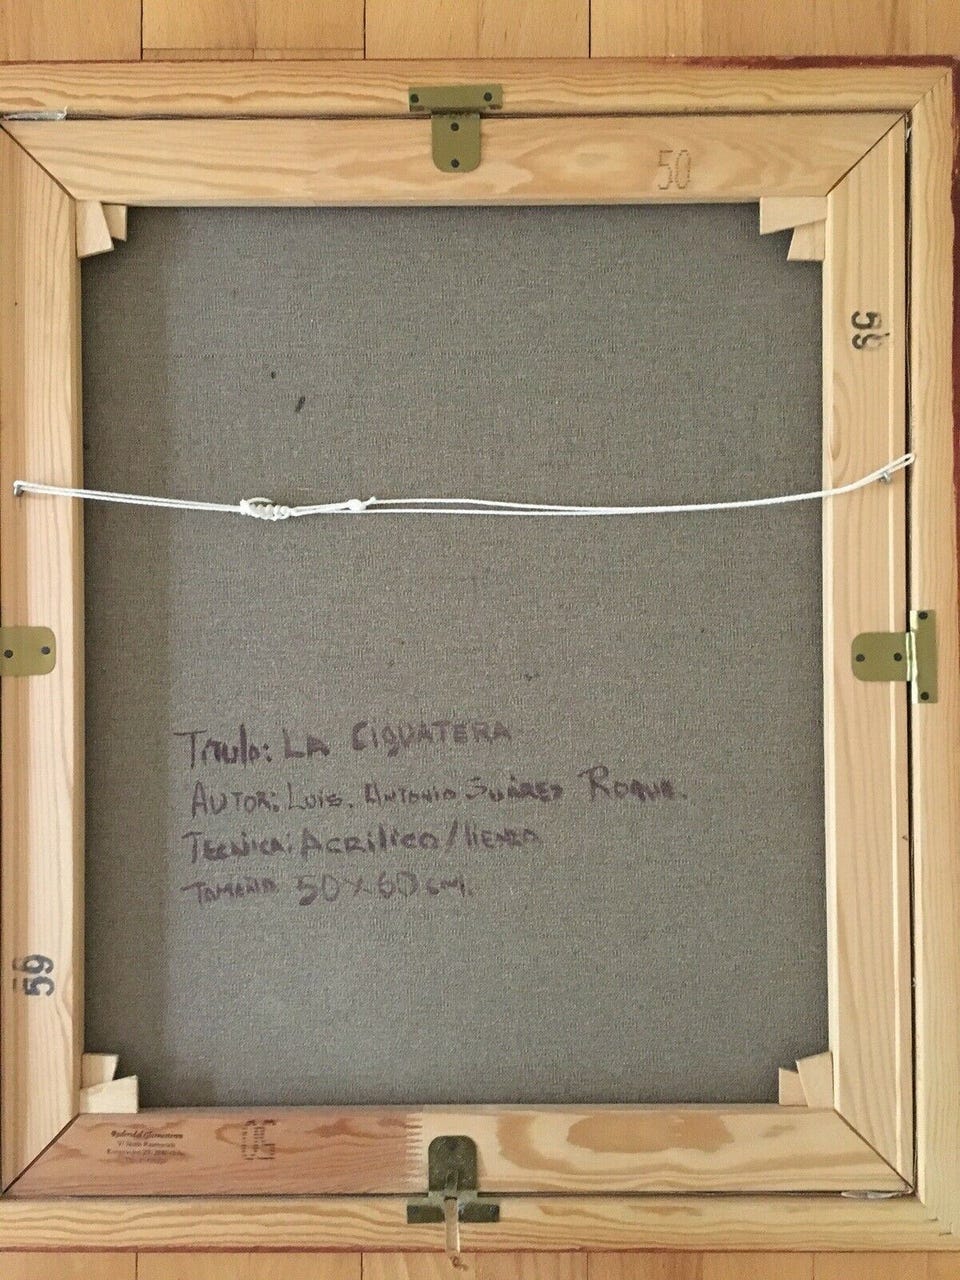 50
59
Titulo: LA CIGUATERA
AUTOR: Luis. Antonio Suárez Roque.
Tecnica: Acrilico/lienzo
Tamaño 50 x 60 cm.
59
50